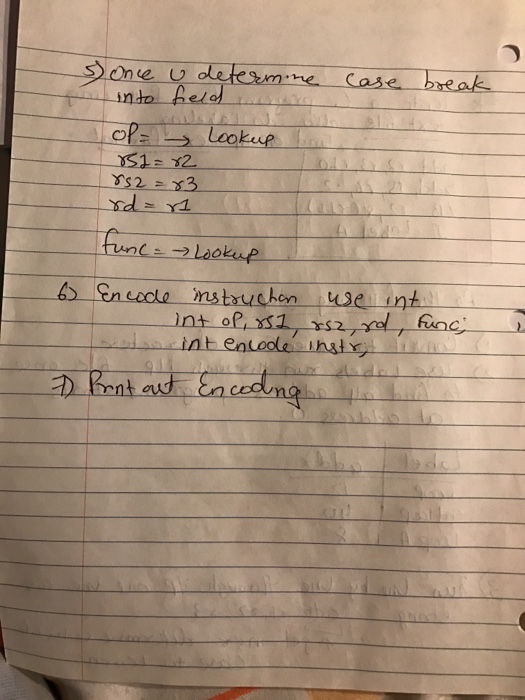 5) Once U determine case break
into field
op = → Lookup
rs1 = r2
rs2 = r3
rd = r1
func = → Lookup
6) Encode instruction use int
int op, rs1, rs2, rd, func;
int encode instr,
7) Print out Encoding